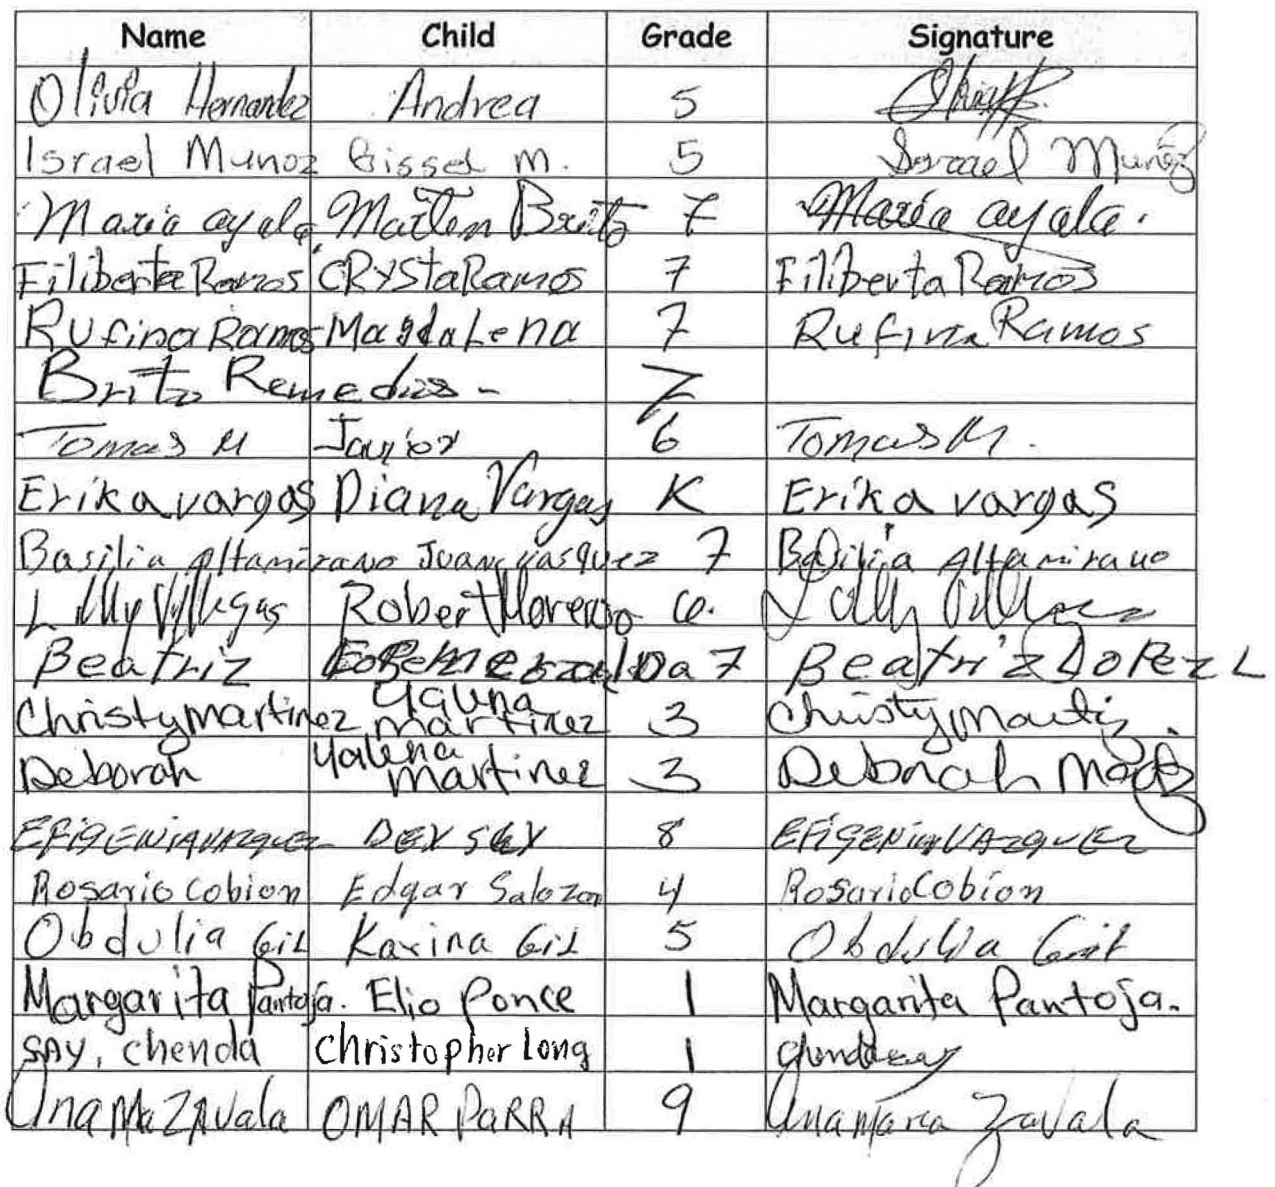 Name Child Grade Signature
Olivia Hernandez Andrea 5
Israel Munoz Gissel M. 5 Israel Muñoz
Maria ayala Brito 7 Maria ayala.
Filiberta Ramos CRYSta Ramos 7 Filiberta Ramos
Rufina Ramos MagdaLena 7 Rufina Ramos
Brito Remedios - 7
Tomas M Javior 6 Tomas M.
Erika vargas Diana Vargas K Erika vargas
Basilia Altamirano Juan vasquez 7 Basilia Altamirano
Lilly Villegas Robert Moreno 6.
Beatriz 7 Beatriz LoPez L
Christy martinez martinez 3 Christy
Deborah Yalena martinez 3 Deborah
EFiGENiA VAZQUEZ 8 EFiGENia VAZQUEZ
Rosario Cobion Edgar 4 Rosario Cobion
Obdulia Gil Karina Gil 5 Obdulia
Margarita Pantoja. Elio Ponce 1 Margarita Pantoja.
SAY, chenda Christopher Long 1
Ana Ma ZAVala OMAR PaRRA 9 Ana Maria Zavala